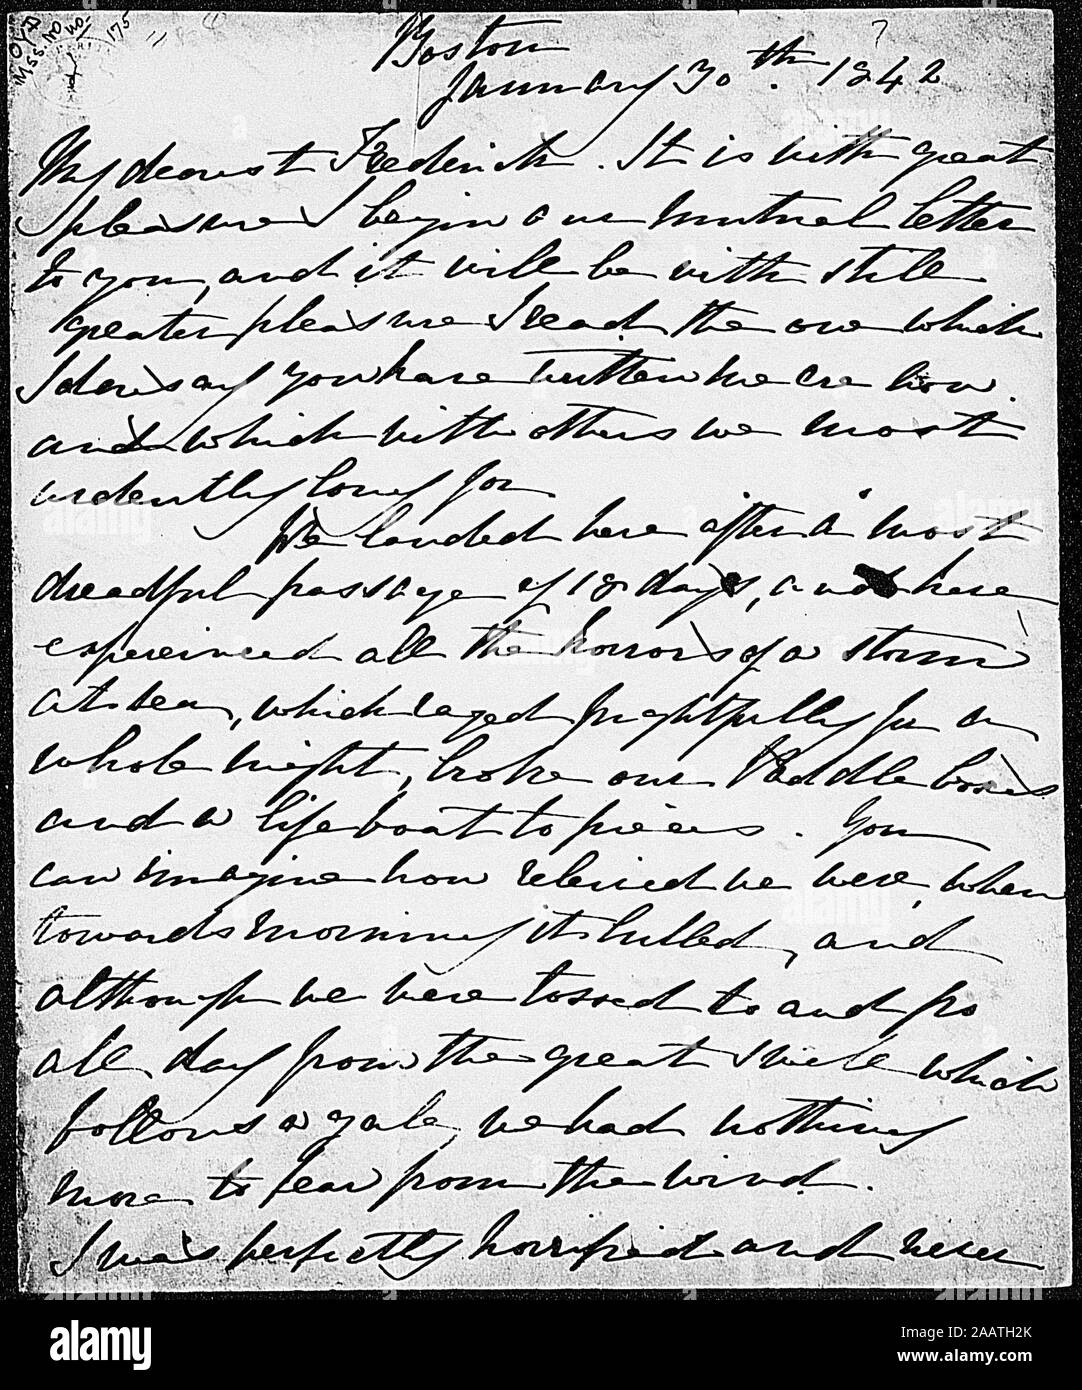 Boston
January 30th. 1842
My dearest Frederick. It is with great
pleasure I begin our mutual letter
to you, and it will be with still
greater pleasure I read the one which
I dare say you have written we are now.
and which with others we most
ardently long for
We landed here after a most
dreadful passage of 18 days, and have
experienced all the horrors of a storm
at sea, which raged frightfully for a
whole night, broke our Paddle boxes
and a life boat to pieces. You
can imagine how relieved we were, when
towards morning it lulled, and
although we were tossed to and fro
all day from the great swell which
follows a gale, we had nothing
more to fear from the wind.
I was perfectly horrified and never
alamy
Image ID: 2AATH2K
www.alamy.com